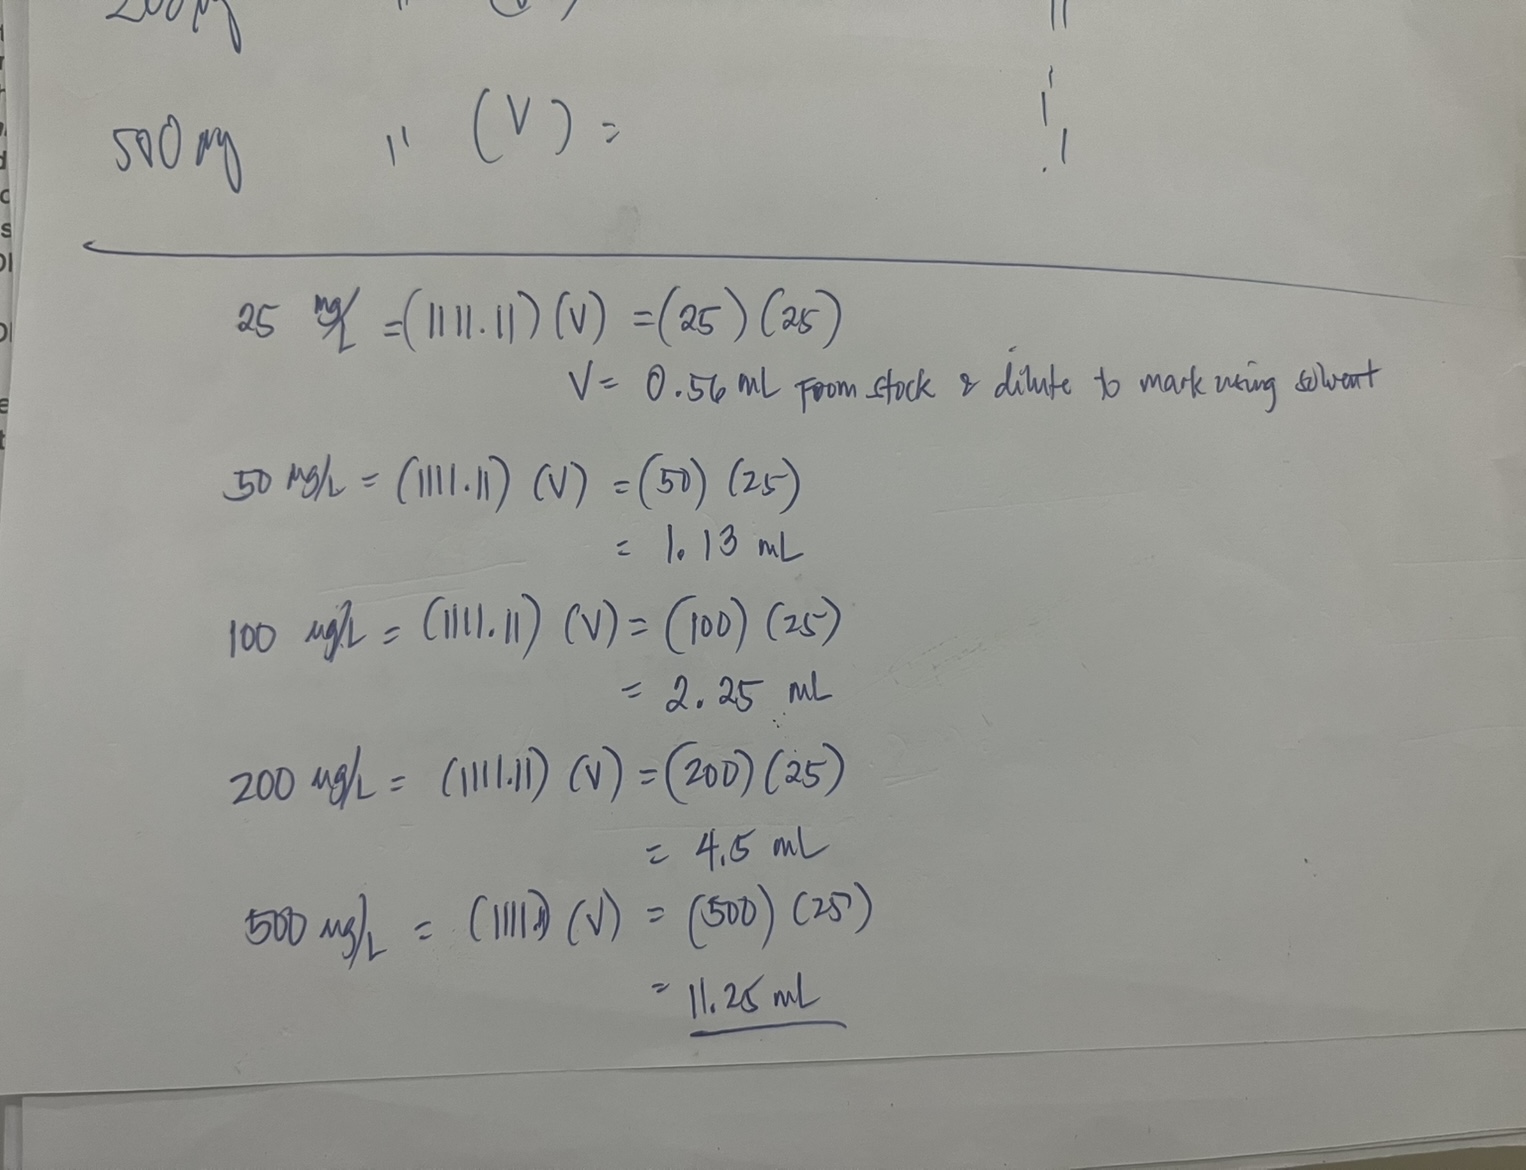 200 µg " (V)
500 µg " (V) =
25 mg/L = (1111.11) (V) = (25) (25)
V = 0.56 mL From stock & dilute to mark using solvent
50 mg/L = (1111.11) (V) = (50) (25)
= 1.13 mL
100 ug/L = (1111.11) (V) = (100) (25)
= 2.25 mL
200 ug/L = (1111.11) (V) = (200) (25)
= 4.5 mL
500 ug/L = (1111.11) (V) = (500) (25)
= 11.25 mL